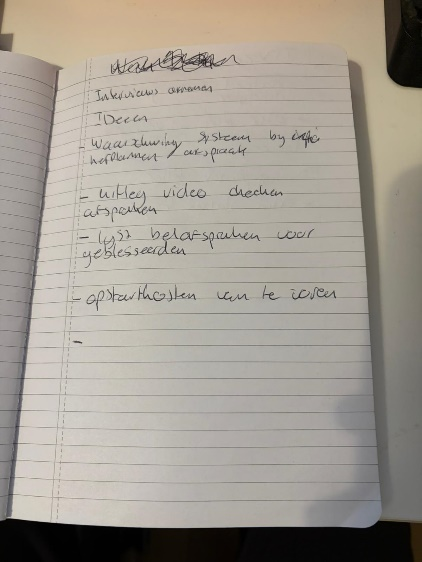 Interviews afnemen
IDeeen
- Waarschuwing systeem by
herplannen afspraak
- uitleg video checken
afspraken
- lyst belafspraken voor
geblesseerden
- opstartkosten van te voren
-